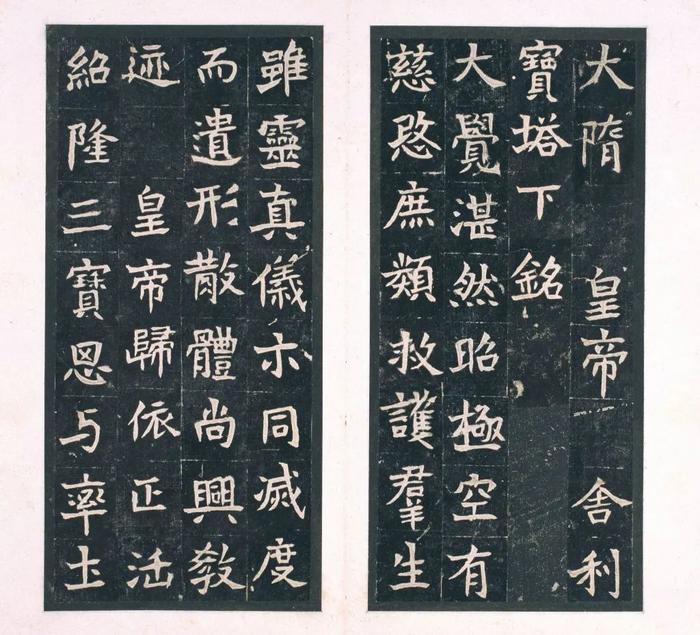 大隋　皇帝　舍利
寶塔下銘
大覺湛然昭極空有
慈愍庶類救護羣生
雖靈真儀示同滅度
而遺形散體尚興教
迹　皇帝歸依正法
紹隆三寶思与率土